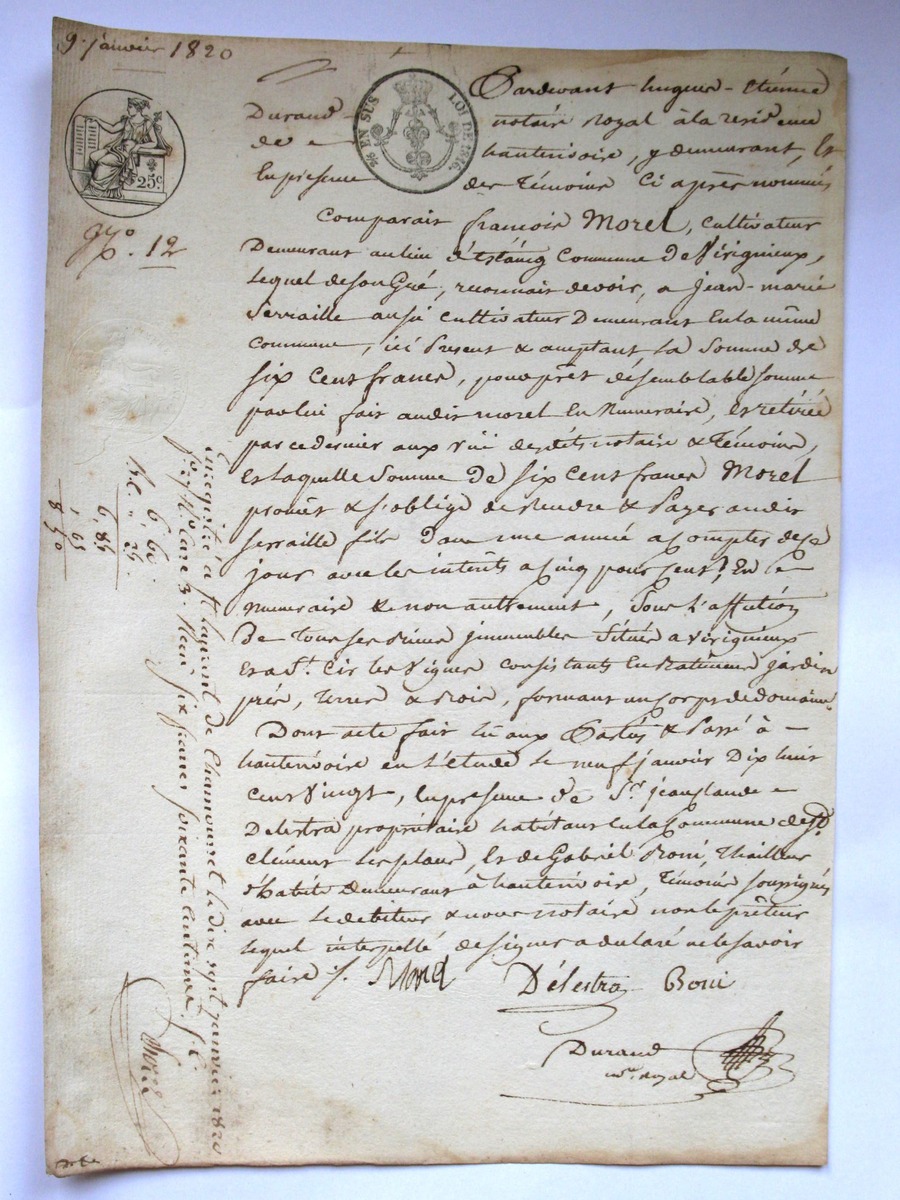 9. janvier 1820
Pardevant hugues-étienne
Durand notaire Royal à la residence
de hauterivoire, y demeurant, Et
En presence des Témoins Ci après nommés
EN SUS LOI DE 1816
25c
No. 12
Comparait françois Morel, cultivateur
Demeurant au lieu d'Estaing Commune De Virignieux,
Lequel de son Gré, reconnait devoir, a jean-marie
Serraille aussi cultivateur Demeurant En la même
Commune, ici Present & acceptant, la Somme de
Six Cent francs, pour prêt de semblable somme
par lui fait audit morel En Numeraire, Et retirée
par ce dernier aux vüe desdits notaire & Témoins,
Et Laquelle Somme De Six Cent francs Morel
promet & s'oblige de Rendre & Payer audit
Serraille fils Dans une année a compter de ce
jour avec les intérêts a Cinq pour Cent, En
Numeraire & non autrement, Sous L'affection
De Tous ses Biens jmmeubles Situés a Virignieux
Et a St. Cir les Vignes Consistants En Batiments jardin
prés, Terres & Bois, formant un Corps de domaine,
Dont acte fait Lû aux Parties & Passé à
hauterivoire en L'étude Le neuf janvier Dix huit
Cent Vingt, En presence De Sr. jean Claude
Delestra propriétaire habitant En la Commune de St.
Clément Les places, Et de Gabriel Boni, Thailleur
d'habits Demeurant à hauterivoire, Témoins soussignés
avec Le debiteur & nous notaire non le prêteur
Lequel interpellé de signer a declaré ne le savoir
faire ./. Morel Délestra Boni
Durand
nre. Royal
Enregistré a St. Laurent de Chamousset le dix sept janvier 1820
Reçu six francs soixante centimes
6, 60
6, 85
, 65